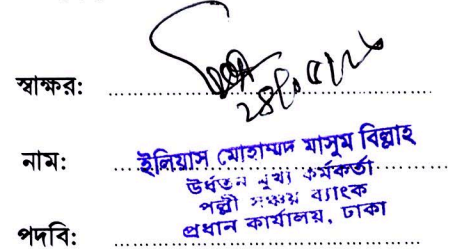 স্বাক্ষর:
নাম: ইলিয়াস মোহাম্মদ মাসুম বিল্লাহ
উর্ধতন মুখ্য কর্মকর্তা
পল্লী সঞ্চয় ব্যাংক
পদবি: প্রধান কার্যালয়, ঢাকা